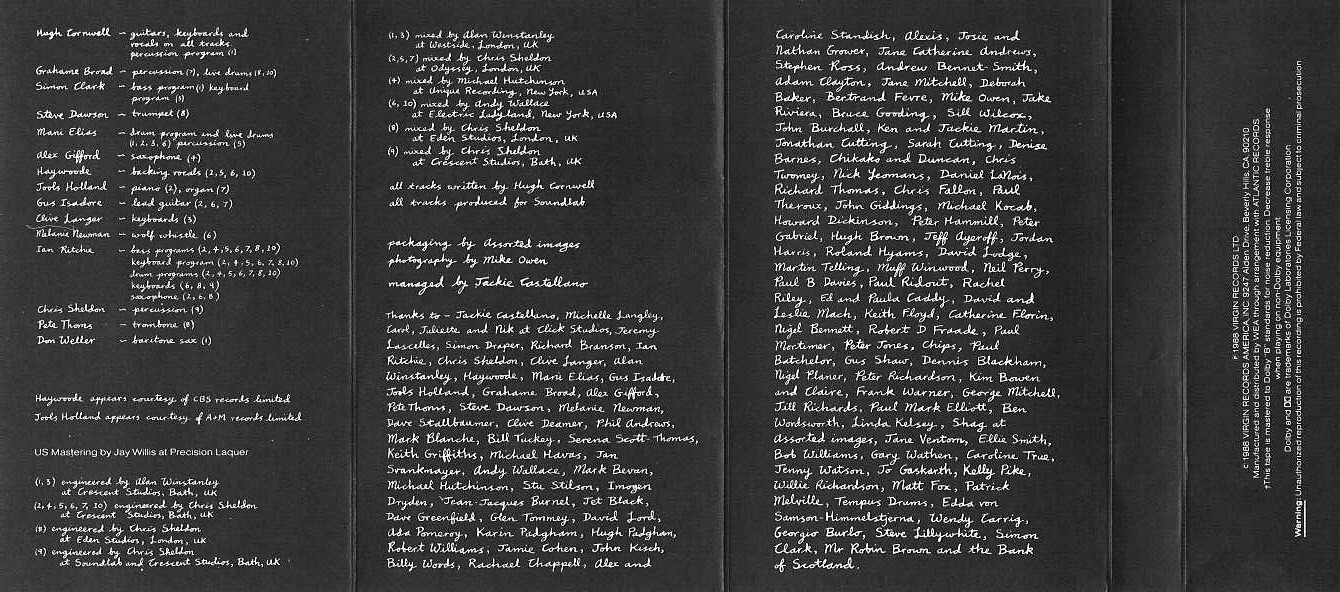 Hugh Cornwell – guitars, keyboards and
vocals on all tracks.
percussion program (1)
Grahame Broad – percussion (7), live drums (8, 10)
Simon Clark – bass program (1) keyboard
program (3)
Steve Dawson – trumpet (8)
Manu Elias – drum program and live drums
(1, 2, 3, 6) percussion (5)
Alex Gifford – saxophone (4)
Haywoode – backing vocals (2, 5, 6, 10)
Jools Holland – piano (2), organ (7)
Gus Isadore – lead guitar (2, 6, 7)
Clive Langer – keyboards (3)
Melanie Newman – wolf whistle (6)
Ian Ritchie – bass programs (2, 4, 5, 6, 7, 8, 10)
keyboard program (2, 4, 5, 6, 7, 8, 10)
drum programs (2, 4, 5, 6, 7, 8, 10)
keyboards (6, 8, 9)
saxophone (2, 6, 8)
Chris Sheldon – percussion (9)
Pete Thoms – trombone (8)
Don Weller – baritone sax (1)
Haywoode appears courtesy of CBS records limited
Jools Holland appears courtesy of A+M records limited
US Mastering by Jay Willis at Precision Laquer
(1, 3) engineered by Alan Winstanley
at Crescent Studios, Bath, UK
(2, 4, 5, 6, 7, 10) engineered by Chris Sheldon
at Crescent Studios, Bath, UK
(8) engineered by Chris Sheldon
at Eden Studios, London, UK
(9) engineered by Chris Sheldon
at Soundlab and Crescent Studios, Bath, UK
(1, 3) mixed by Alan Winstanley
at Westside, London, UK
(2, 5, 7) mixed by Chris Sheldon
at Odyssey, London, UK
(4) mixed by Michael Hutchinson
at Unique Recording, New York, USA
(6, 10) mixed by Andy Wallace
at Electric Ladyland, New York, USA
(8) mixed by Chris Sheldon
at Eden Studios, London, UK
(9) mixed by Chris Sheldon
at Crescent Studios, Bath, UK
all tracks written by Hugh Cornwell
all tracks produced for Soundlab
packaging by Assorted images
photography by Mike Owen
managed by Jackie Castellano
Thanks to – Jackie Castellano, Michelle Langley,
Carol, Juliette and Nik at Click Studios, Jeremy
Lascelles, Simon Draper, Richard Branson, Ian
Ritchie, Chris Sheldon, Clive Langer, Alan
Winstanley, Haywoode, Manu Elias, Gus Isadore,
Jools Holland, Grahame Broad, Alex Gifford,
Pete Thoms, Steve Dawson, Melanie Newman,
Dave Stallbaumer, Clive Deamer, Phil Andrews,
Mark Blanche, Bill Tuckey, Serena Scott-Thomas,
Keith Griffiths, Michael Havas, Jan
Svankmayer, Andy Wallace, Mark Bevan,
Michael Hutchinson, Stu Stilson, Imogen
Dryden, Jean-Jacques Burnel, Jet Black,
Dave Greenfield, Glen Tommey, David Lord,
Ada Pomeroy, Karin Padgham, Hugh Padgham,
Robert Williams, Jamie Cohen, John Kisch,
Billy Woods, Rachael Chappell, Alec and
Caroline Standish, Alexis, Josie and
Nathan Grower, Jane Catherine Andrews,
Stephen Ross, Andrew Bennet-Smith,
Adam Clayton, Jane Mitchell, Deborah
Baker, Bertrand Fevre, Mike Owen, Jake
Riviera, Bruce Gooding, Sill Wilcox,
John Burchall, Ken and Jackie Martin,
Jonathan Cutting, Sarah Cutting, Denise
Barnes, Chikako and Duncan, Chris
Twomey, Nick Yeomans, Daniel LaNois,
Richard Thomas, Chris Fallon, Paul
Theroux, John Giddings, Michael Kocab,
Howard Dickinson, Peter Hammill, Peter
Gabriel, Hugh Brown, Jeff Ayeroff, Jordan
Harris, Roland Hyams, David Lodge,
Martin Telling, Muff Winwood, Neil Perry,
Paul B Davies, Paul Ridout, Rachel
Riley, Ed and Paula Caddy, David and
Leslie Mach, Keith Floyd, Catherine Florin,
Nigel Bennett, Robert D Fraade, Paul
Mortimer, Peter Jones, Chips, Paul
Batchelor, Gus Shaw, Dennis Blackham,
Nigel Planer, Peter Richardson, Kim Bowen
and Claire, Frank Warner, George Mitchell,
Jill Richards, Paul Mark Elliott, Ben
Wordsworth, Linda Kelsey, Shag at
Assorted images, Jane Ventom, Ellie Smith,
Bob Williams, Gary Wathen, Caroline True,
Jenny Watson, Jo Gaskarth, Kelly Pike,
Willie Richardson, Matt Fox, Patrick
Melville, Tempus Drums, Edda von
Samson-Himmelstjerna, Wendy Carrig,
Georgio Burlo, Steve Lillywhite, Simon
Clark, Mr Robin Brown and the Bank
of Scotland.
℗ 1988 VIRGIN RECORDS LTD
© 1988 VIRGIN RECORDS AMERICA, INC. 9247 Alden Drive, Beverly Hills, CA. 90210
Manufactured and distributed by WEA through arrangement with ATLANTIC RECORDS
†This tape is mastered to Dolby "B" standards for noise reduction. Decrease treble response
when playing on non-Dolby equipment
Dolby and are trademarks of Dolby Laboratories Licensing Corporation
Warning: Unauthorized reproduction of this recording is prohibited by Federal law and subject to criminal prosecution